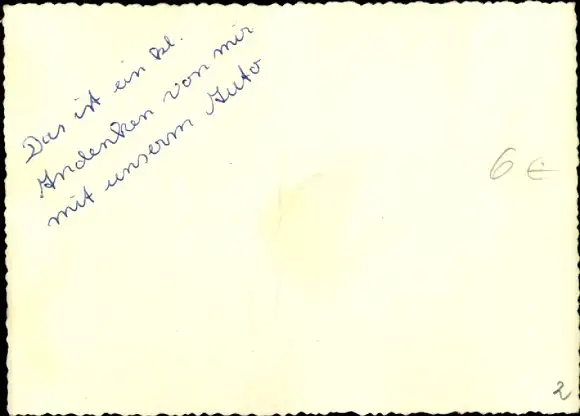 Das ist ein kl.
Andenken von mir
mit unserm Auto
6 €
2